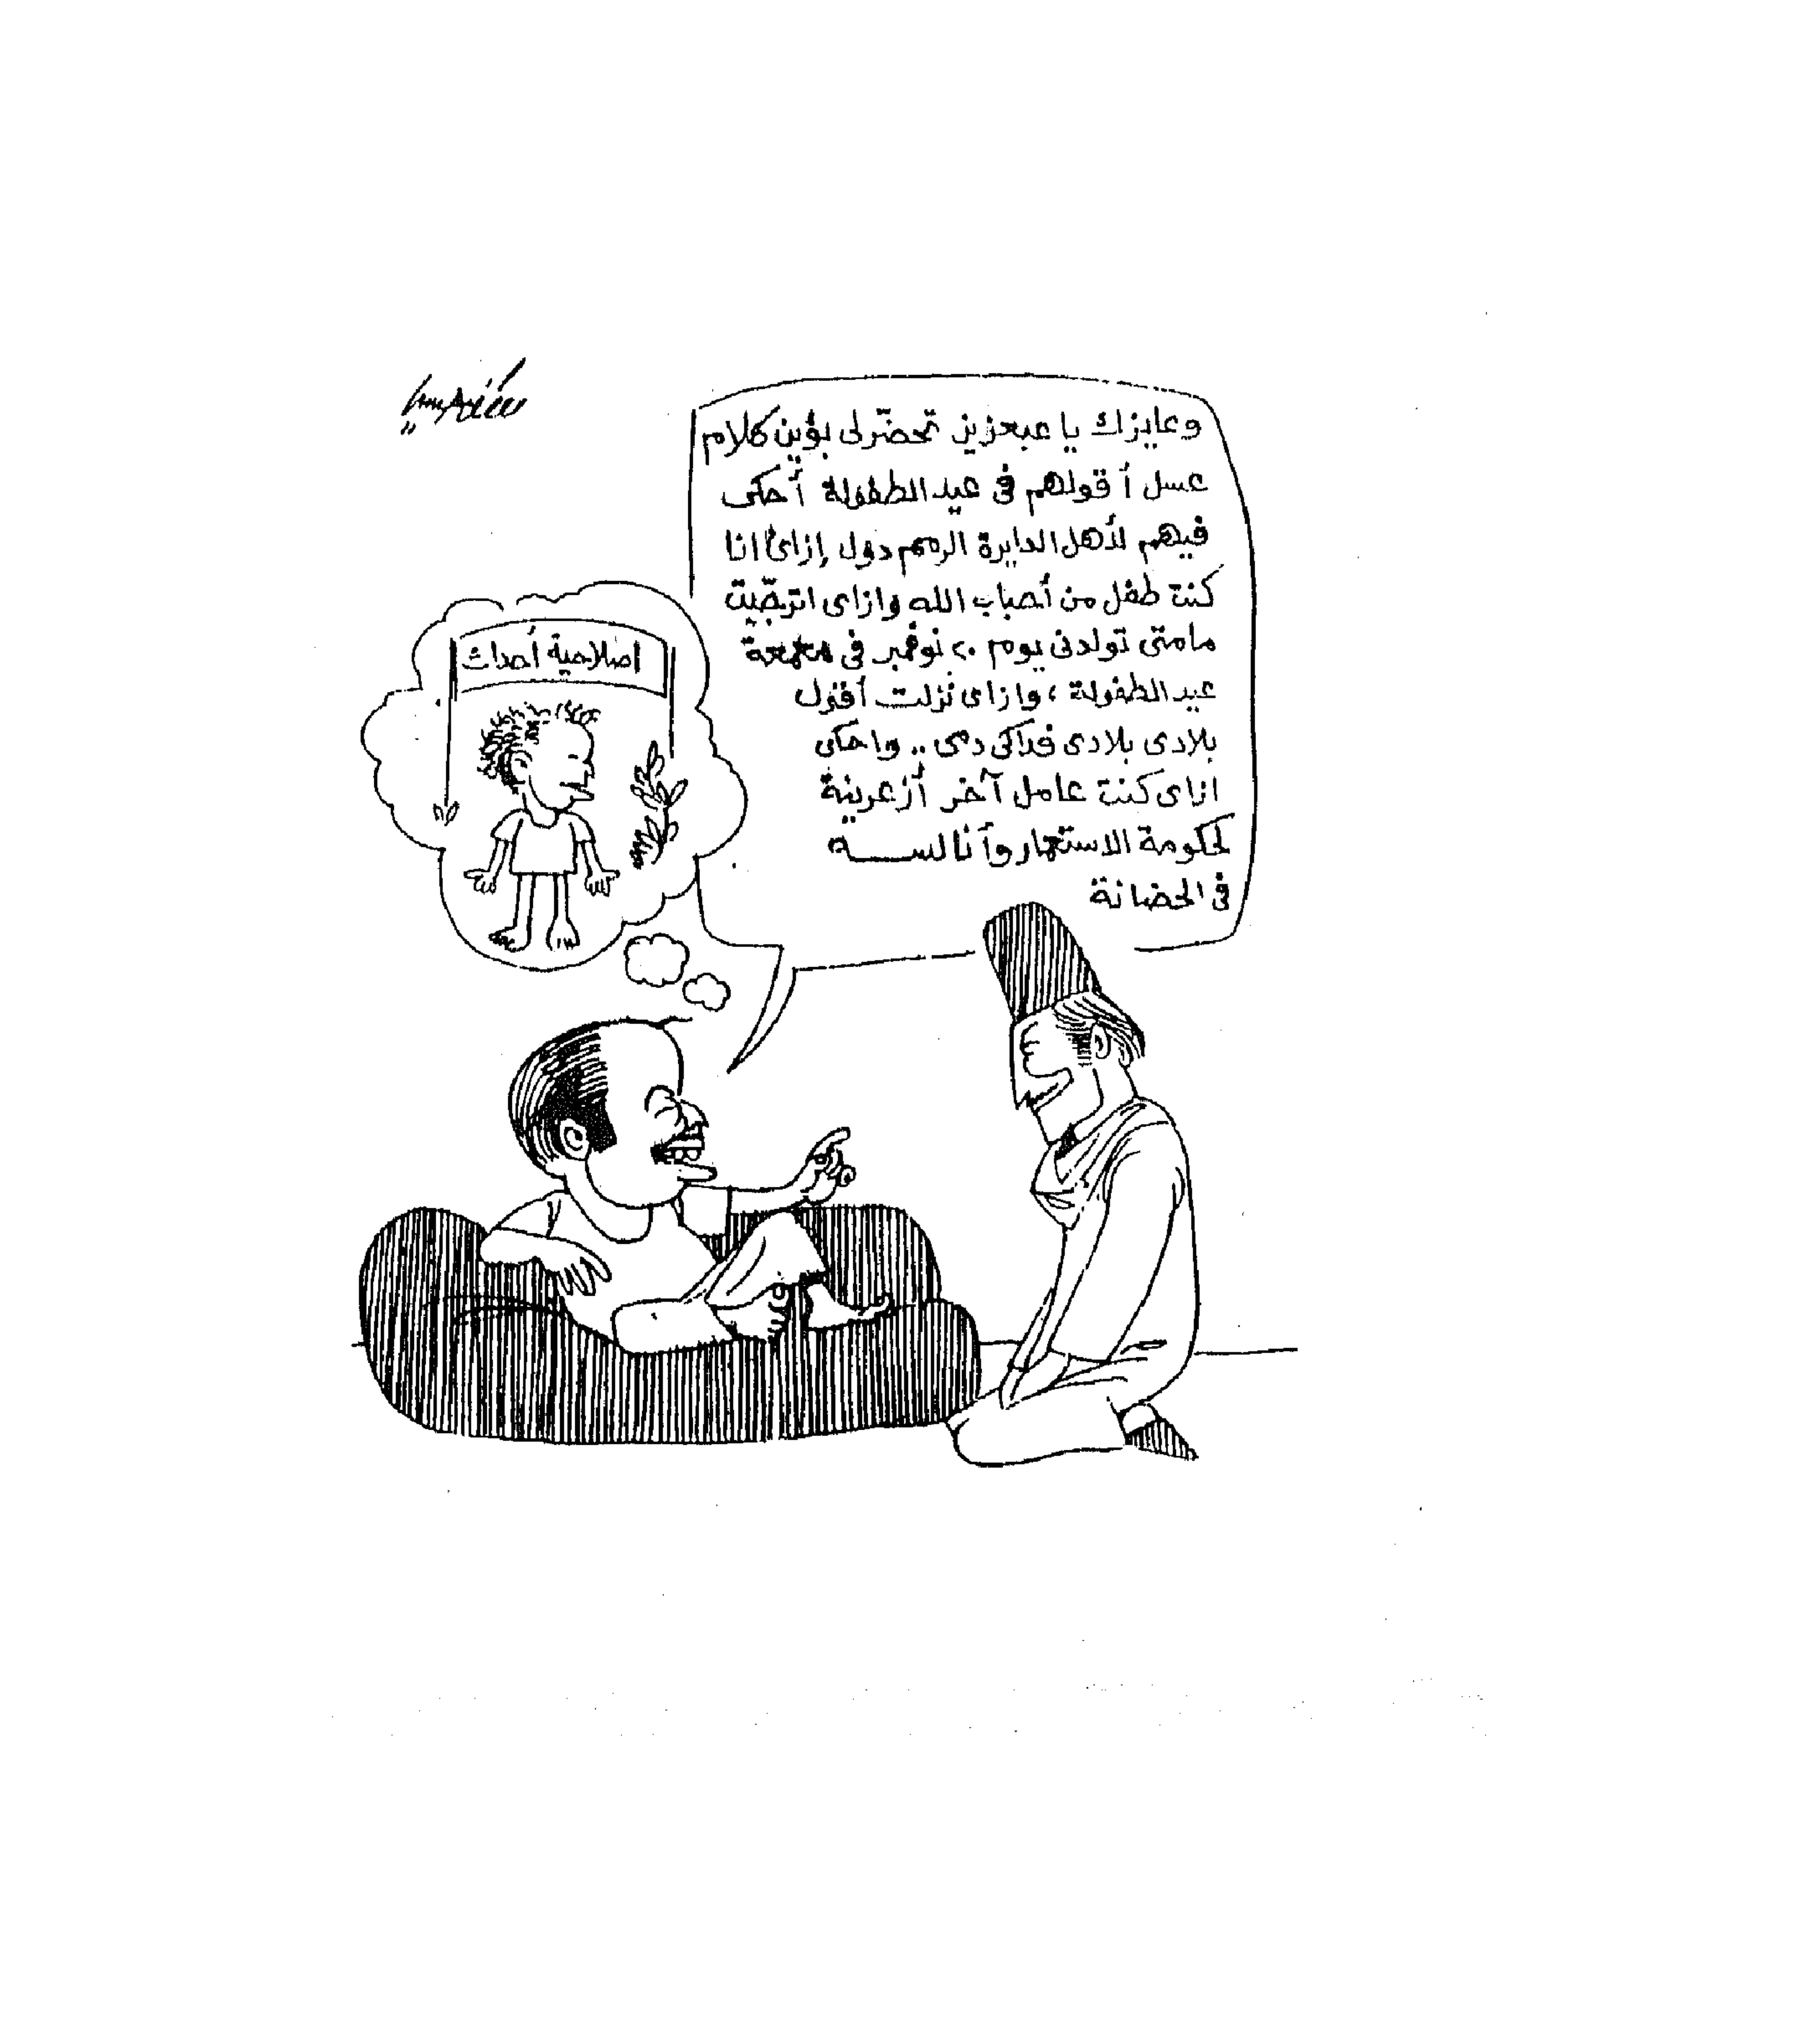 وعايزك يا عبعزيز تحضّرلى بؤين كلام
عسل أقولهم فى عيد الطفولة أحكى
فيهم لأهل الدايرة الرمم دول إزاى انا
كنت طفل من أحباب الله وازاى اترجّيت
مامتى تولدنى يوم ٢٠ نوفمبر فى معمعة
عيد الطفولة ، وازاى نزلت أقول
بلادى بلادى فداكى دمى .. واحكى
ازاى كنت عامل آخر أزعرينة
لحكومة الاستعمار وأنا لســـه
فى الحضانة
اصلاحية أحداث